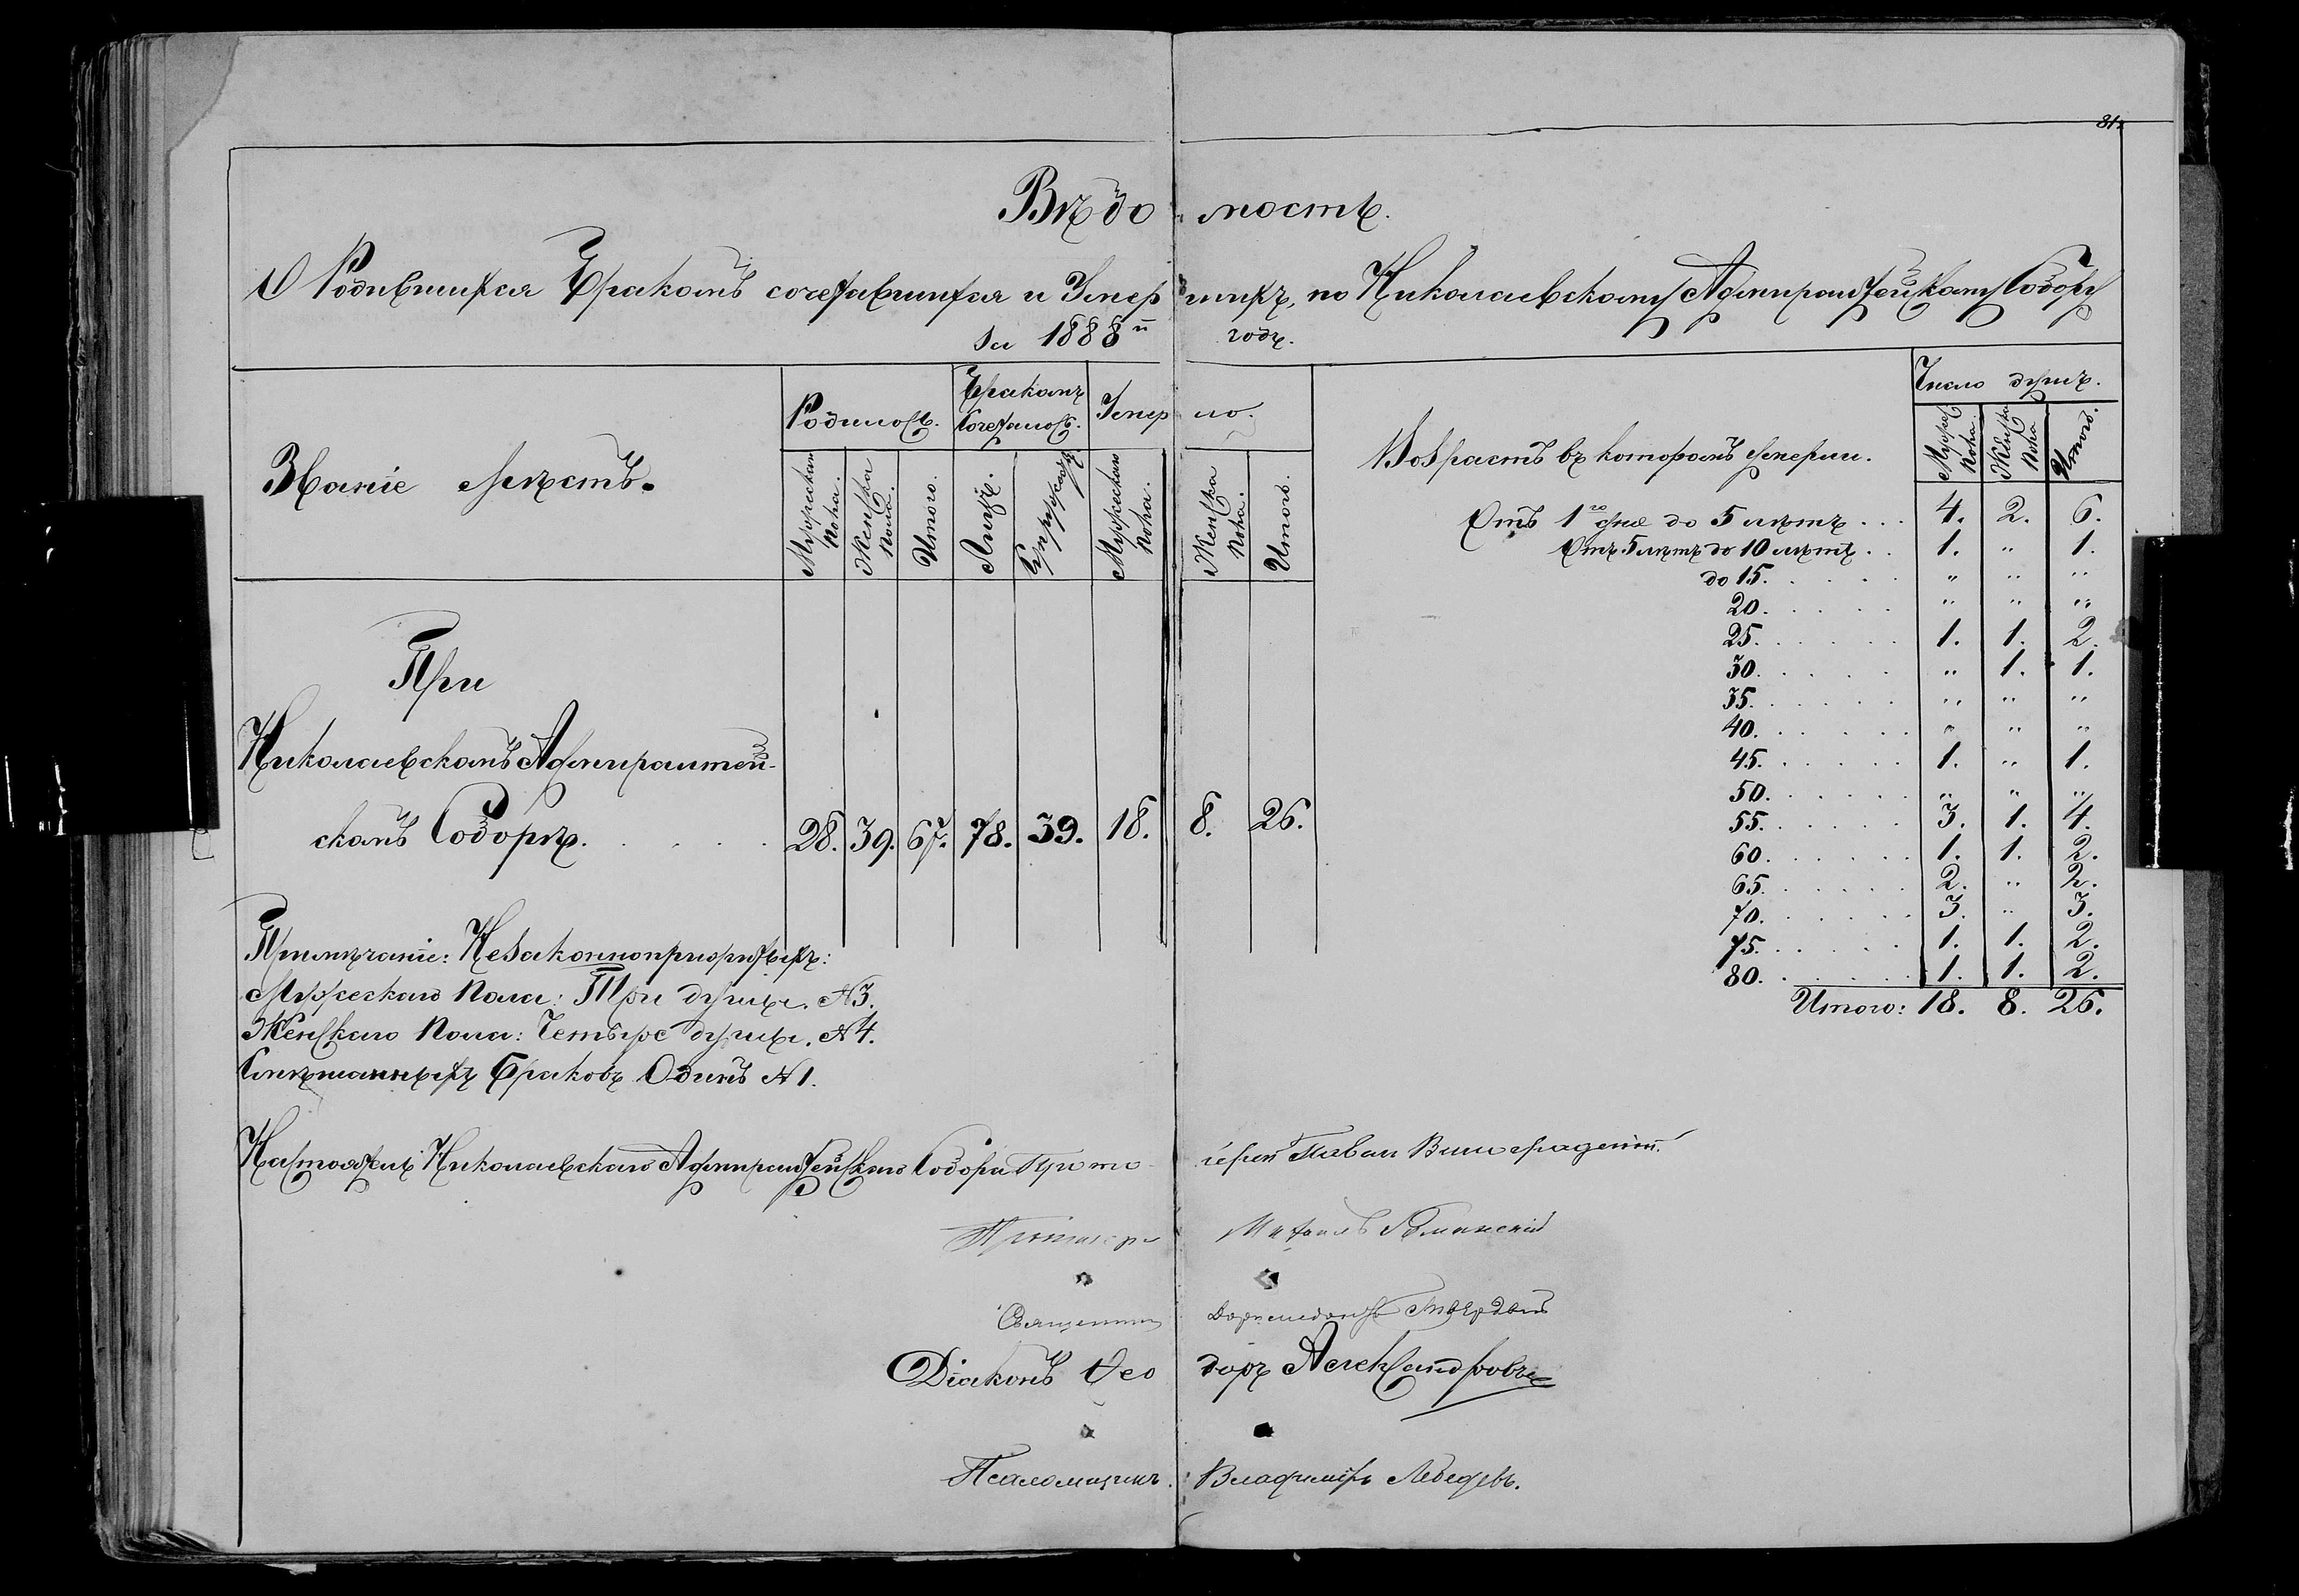 81.
Вѣдомость.
О Родившихся Бракомъ сочетавшихся и Умершихъ, по Николаевскому Адмиралтейскому Собору
за 1888й годъ.
Званіе мѣстъ.
Родилось.
Бракомъ Сочеталось.
Умерло.
Мужескаго пола.
Женска пола.
Итого.
Лицъ.
Супружествъ
Мужескаго пола.
Женска пола.
Итого.
При
Николаевскомъ Адмиралтей-
скомъ Соборѣ. 28. 39. 67. 78. 39. 18. 8. 26.
Возрастъ въ которомъ умерли.
Число душъ.
Мужес. пола.
Женска пола
Итого.
Отъ 1го дня до 5 лѣтъ . . . 4. 2. 6.
Отъ 5 лѣтъ до 10 лѣтъ . . 1. " 1.
до 15. . . . . . " " "
20. . . . . . " " "
25. . . . . . 1. 1. 2.
30. . . . . . " 1. 1.
35. . . . . . " " "
40. . . . . . " " "
45. . . . . . 1. " 1.
50. . . . . . " " "
55. . . . . . 3. 1. 4.
60. . . . . . 1. 1. 2.
65. . . . . . 2. " 2.
70. . . . . . 3. " 3.
75. . . . . . 1. 1. 2.
80. . . . . . 1. 1. 2.
Итого: 18. 8. 26.
Примѣчаніе: Незаконноприжитыхъ:
Мужескаго пола: Три души. №3.
Женскаго пола: Четыре души. №4.
Смѣшанныхъ Браковъ Одинъ №1.
Настоятель Николаевскаго Адмиралтейскаго Собора Протоіерей Павел Виноградовъ.
Протоіерей Михаилъ
Священник Твердый
Діаконъ Ѳеодоръ Александровъ
Псаломщикъ. Владиміръ Лебедевъ.